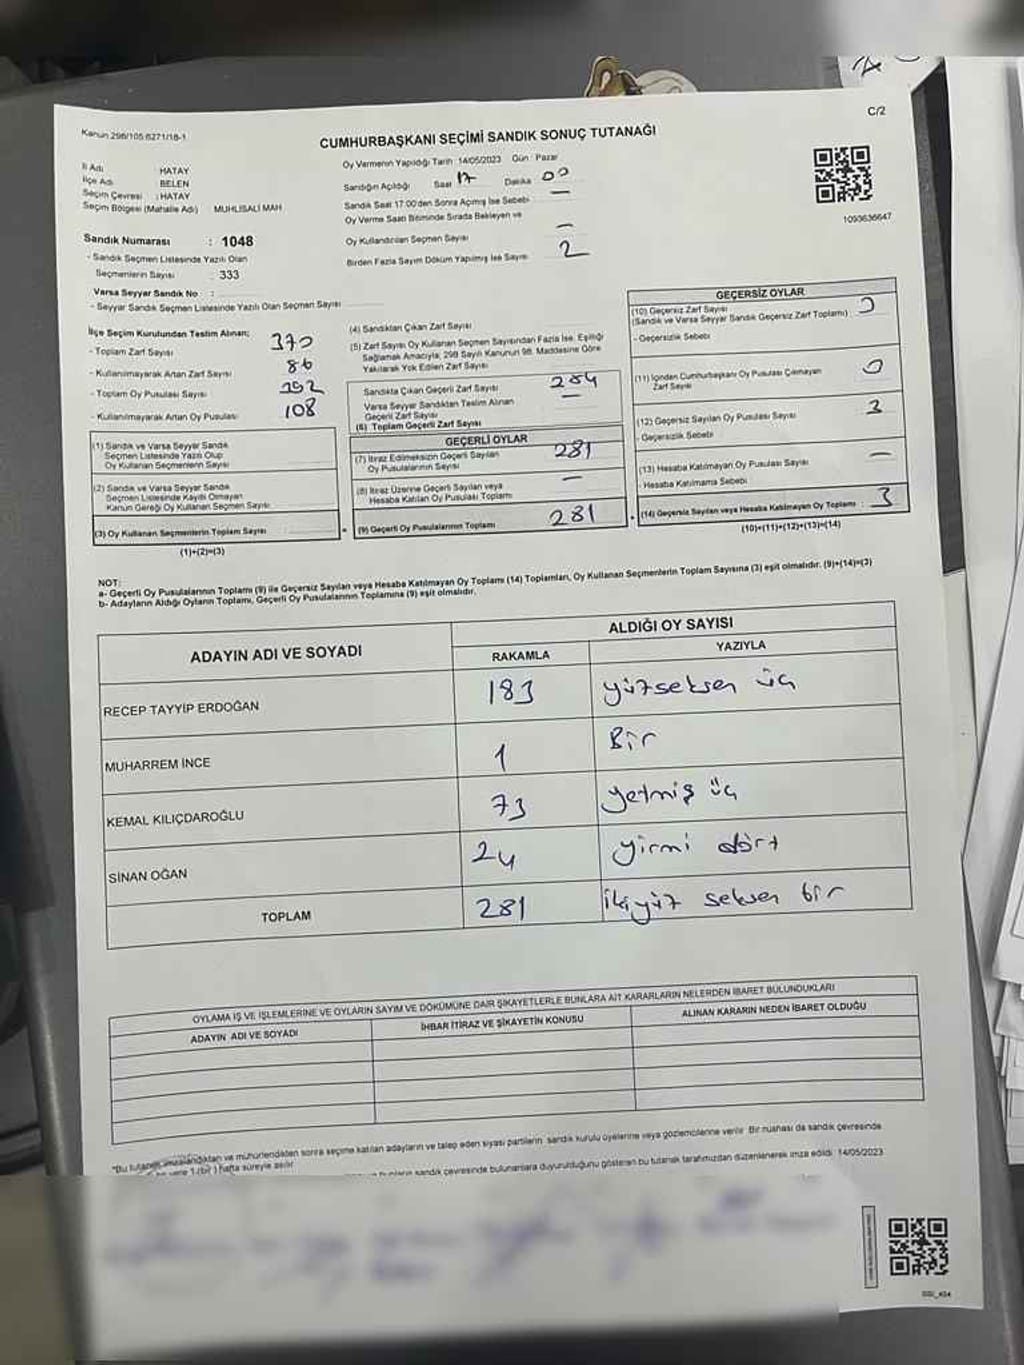 C/2
Kanun 298/105 6271/16-1
CUMHURBAŞKANI SEÇİMİ SANDIK SONUÇ TUTANAĞI
İl Adı HATAY
İlçe Adı BELEN
Seçim Çevresi : HATAY
Seçim Bölgesi (Mahalle Adı) MUHLİSALİ MAH
Oy Vermenin Yapıldığı Tarih : 14/05/2023 Gün : Pazar
Sandığın Açıldığı Saat 17 Dakika 00
Sandık Saat 17:00'den Sonra Açımış İse Sebebi —
Oy Verme Saati Bitiminde Sırada Bekleyen ve
Oy Kullandırılan Seçmen Sayısı —
Birden Fazla Sayım Döküm Yapılmış İse Sayısı 2
1093636647
Sandık Numarası : 1048
- Sandık Seçmen Listesinde Yazılı Olan
Seçmenlerin Sayısı : 333
Varsa Seyyar Sandık No :
- Seyyar Sandık Seçmen Listesinde Yazılı Olan Seçmen Sayısı
İlçe Seçim Kurulundan Teslim Alınan;
- Toplam Zarf Sayısı 370
- Kullanılmayarak Artan Zarf Sayısı 86
- Toplam Oy Pusulası Sayısı
- Kullanılmayarak Artan Oy Pusulası 108
(1) Sandık ve Varsa Seyyar Sandık
Seçmen Listesinde Yazılı Olup
Oy Kullanan Seçmenlerin Sayısı
(2) Sandık ve Varsa Seyyar Sandık
Seçmen Listesinde Kayıtlı Olmayan
Kanun Gereği Oy Kullanan Seçmen Sayısı
(3) Oy Kullanan Seçmenlerin Toplam Sayısı
(1)+(2)=(3)
(4) Sandıktan Çıkan Zarf Sayısı
(5) Zarf Sayısı Oy Kullanan Seçmen Sayısından Fazla İse, Eşitliği
Sağlamak Amacıyla; 298 Sayılı Kanunun 98. Maddesine Göre
Yakılarak Yok Edilen Zarf Sayısı
Sandıkta Çıkan Geçerli Zarf Sayısı 284
Varsa Seyyar Sandıktan Teslim Alınan
Geçerli Zarf Sayısı —
(6) Toplam Geçerli Zarf Sayısı
GEÇERLİ OYLAR
(7) İtiraz Edilmeksizin Geçerli Sayılan
Oy Pusulalarının Sayısı 281
(8) İtiraz Üzerine Geçerli Sayılan veya
Hesaba Katılan Oy Pusulası Toplamı —
(9) Geçerli Oy Pusulalarının Toplamı 281
GEÇERSİZ OYLAR
(10) Geçersiz Zarf Sayısı
(Sandık ve Varsa Seyyar Sandık Geçersiz Zarf Toplamı) 0
- Geçersizlik Sebebi
(11) İçinden Cumhurbaşkanı Oy Pusulası Çıkmayan
Zarf Sayısı 0
(12) Geçersiz Sayılan Oy Pusulası Sayısı 3
- Geçersizlik Sebebi
(13) Hesaba Katılmayan Oy Pusulası Sayısı —
- Hesaba Katılmama Sebebi
(14) Geçersiz Sayılan veya Hesaba Katılmayan Oy Toplamı : 3
(10)+(11)+(12)+(13)=(14)
NOT:
a- Geçerli Oy Pusulalarının Toplamı (9) ile Geçersiz Sayılan veya Hesaba Katılmayan Oy Toplamı (14) Toplamları, Oy Kullanan Seçmenlerin Toplam Sayısına (3) eşit olmalıdır. (9)+(14)=(3)
b- Adayların Aldığı Oyların Toplamı, Geçerli Oy Pusulalarının Toplamına (9) eşit olmalıdır.
ADAYIN ADI VE SOYADI
ALDIĞI OY SAYISI
RAKAMLA YAZIYLA
RECEP TAYYİP ERDOĞAN 183 yüzseksen üç
MUHARREM İNCE 1 Bir
KEMAL KILIÇDAROĞLU 73 yetmiş üç
SİNAN OĞAN 24 yirmi dört
TOPLAM 281 ikiyüz seksen bir
OYLAMA İŞ VE İŞLEMLERİNE VE OYLARIN SAYIM VE DÖKÜMÜNE DAİR ŞİKAYETLERLE BUNLARA AİT KARARLARIN NELERDEN İBARET BULUNDUKLARI
ADAYIN ADI VE SOYADI İHBAR İTİRAZ VE ŞİKAYETİN KONUSU ALINAN KARARIN NEDEN İBARET OLDUĞU
*Bu tutanak imzalandıktan ve mühürlendikten sonra seçime katılan adayların ve talep eden siyasi partilerin sandık kurulu üyelerine veya gözlemcilerine verilir. Bir nüshası da sandık çevresinde
1 (bir) hafta süreyle asılır
sandık çevresinde bulunanlara duyurulduğunu gösteren bu tutanak tarafımızdan düzenlenerek imza edildi. 14/05/2023